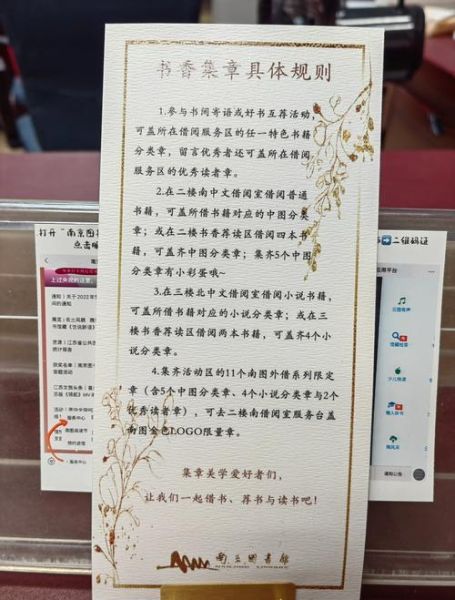 书香集章具体规则
1.参与书间寄语或好书互荐活动,
可盖所在借阅服务区的任一特色书籍
分类章，留言优秀者还可盖所在借阅
服务区的优秀读者章。
2.在二楼南中文借阅室借阅普通
书籍，可盖所借书籍对应的中图分类
章；或在二楼书香荐读区借阅四本书
籍，可盖齐中图分类章；集齐5个中图
分类章有小彩蛋哦~
3.在三楼北中文借阅室借阅小说书籍,
可盖所借书籍对应的小说分类章；或在三
楼书香荐读区借阅两本书籍，可盖齐4个小
说分类章。
4.集齐活动区的11个南图外借系列限定
章（含5个中图分类章、4个小说分类章与2个
优秀读者章），可去二楼南借阅室服务台盖
南图金色LOGO限量章。
集章美学爱好者们，
让我们一起借书、荐书与读书吧！
南京图书馆
NANJING LIBRARY
打开“南京图
点击
二维码证
上过央视的这里,
服务中心
通知公告